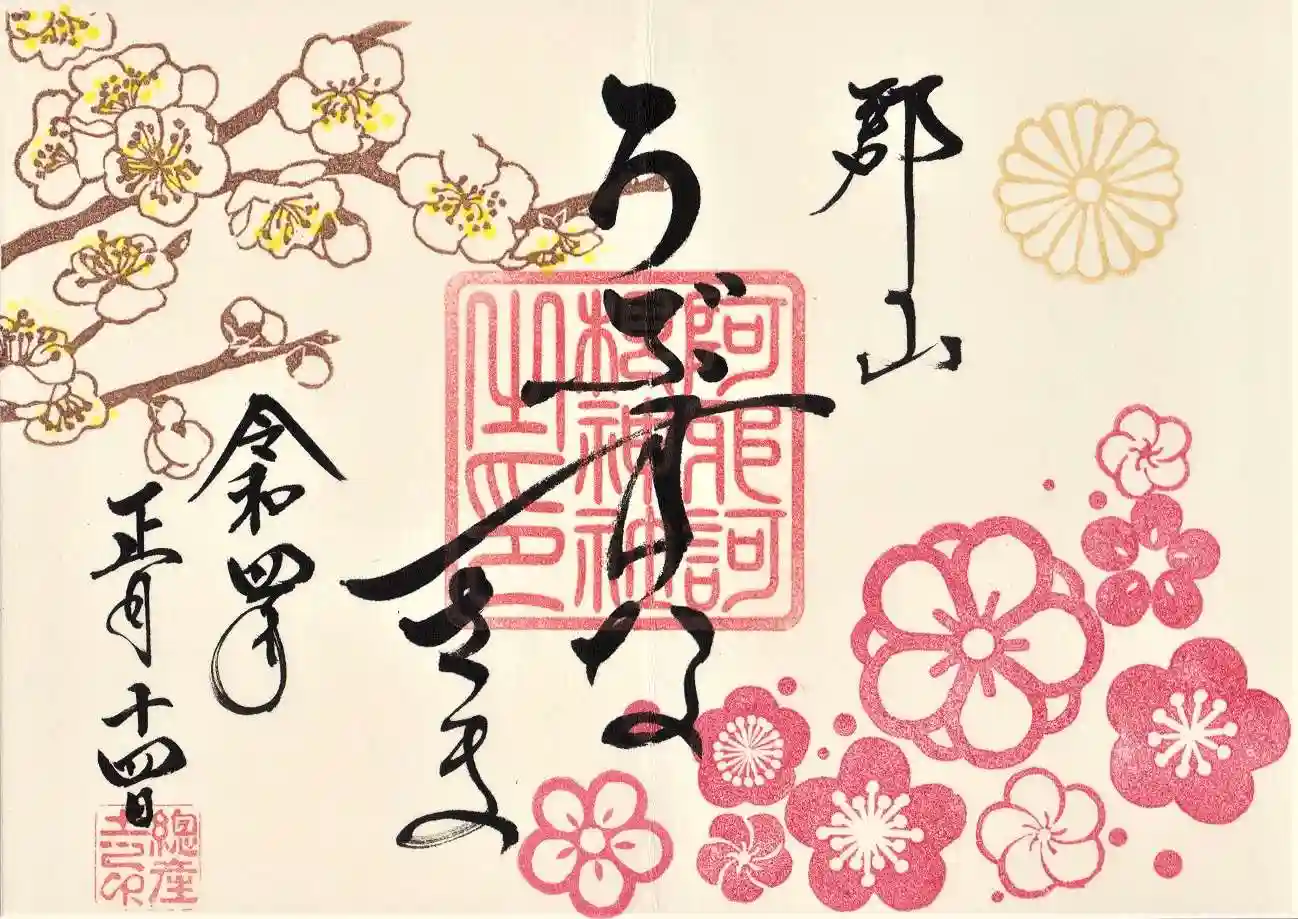 郡山
うぶすな
さま
阿邪訶
根神社
之印
令和四年
正月十四日
總産